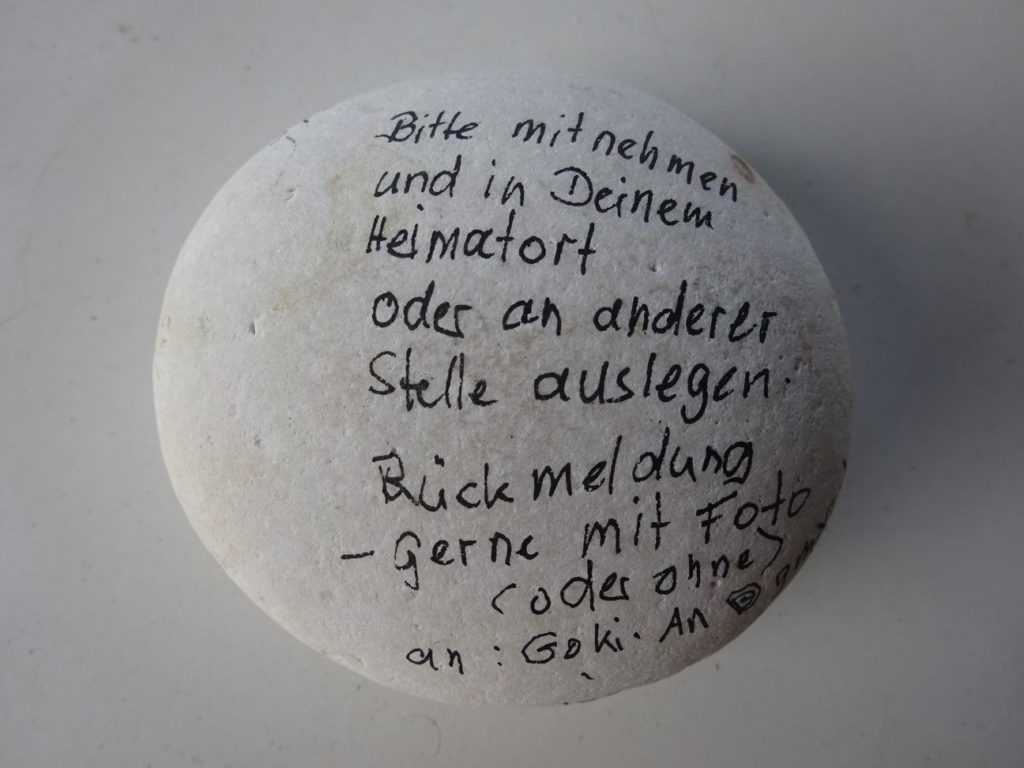 Bitte mitnehmen
und in Deinem
Heimatort
oder an anderer
Stelle auslegen.
Rückmeldung
- Gerne mit Foto
(oder ohne)
an : Goki. An